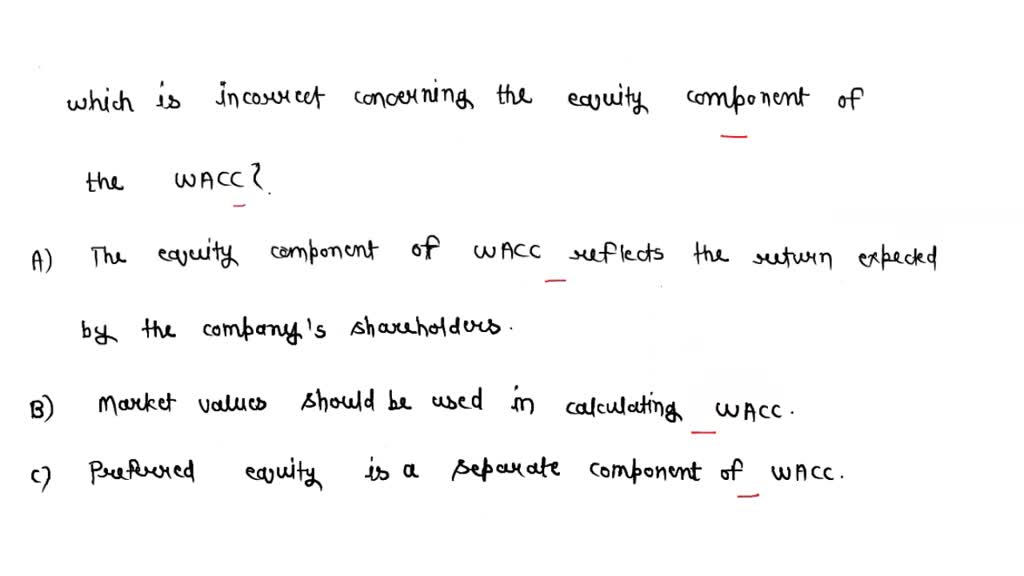 which is incorrect concerning the equity component of
the WACC?
A) The equity component of WACC reflects the return expected
by the company's shareholders.
B) Market values should be used in calculating WACC.
C) Preferred equity is a separate component of WACC.